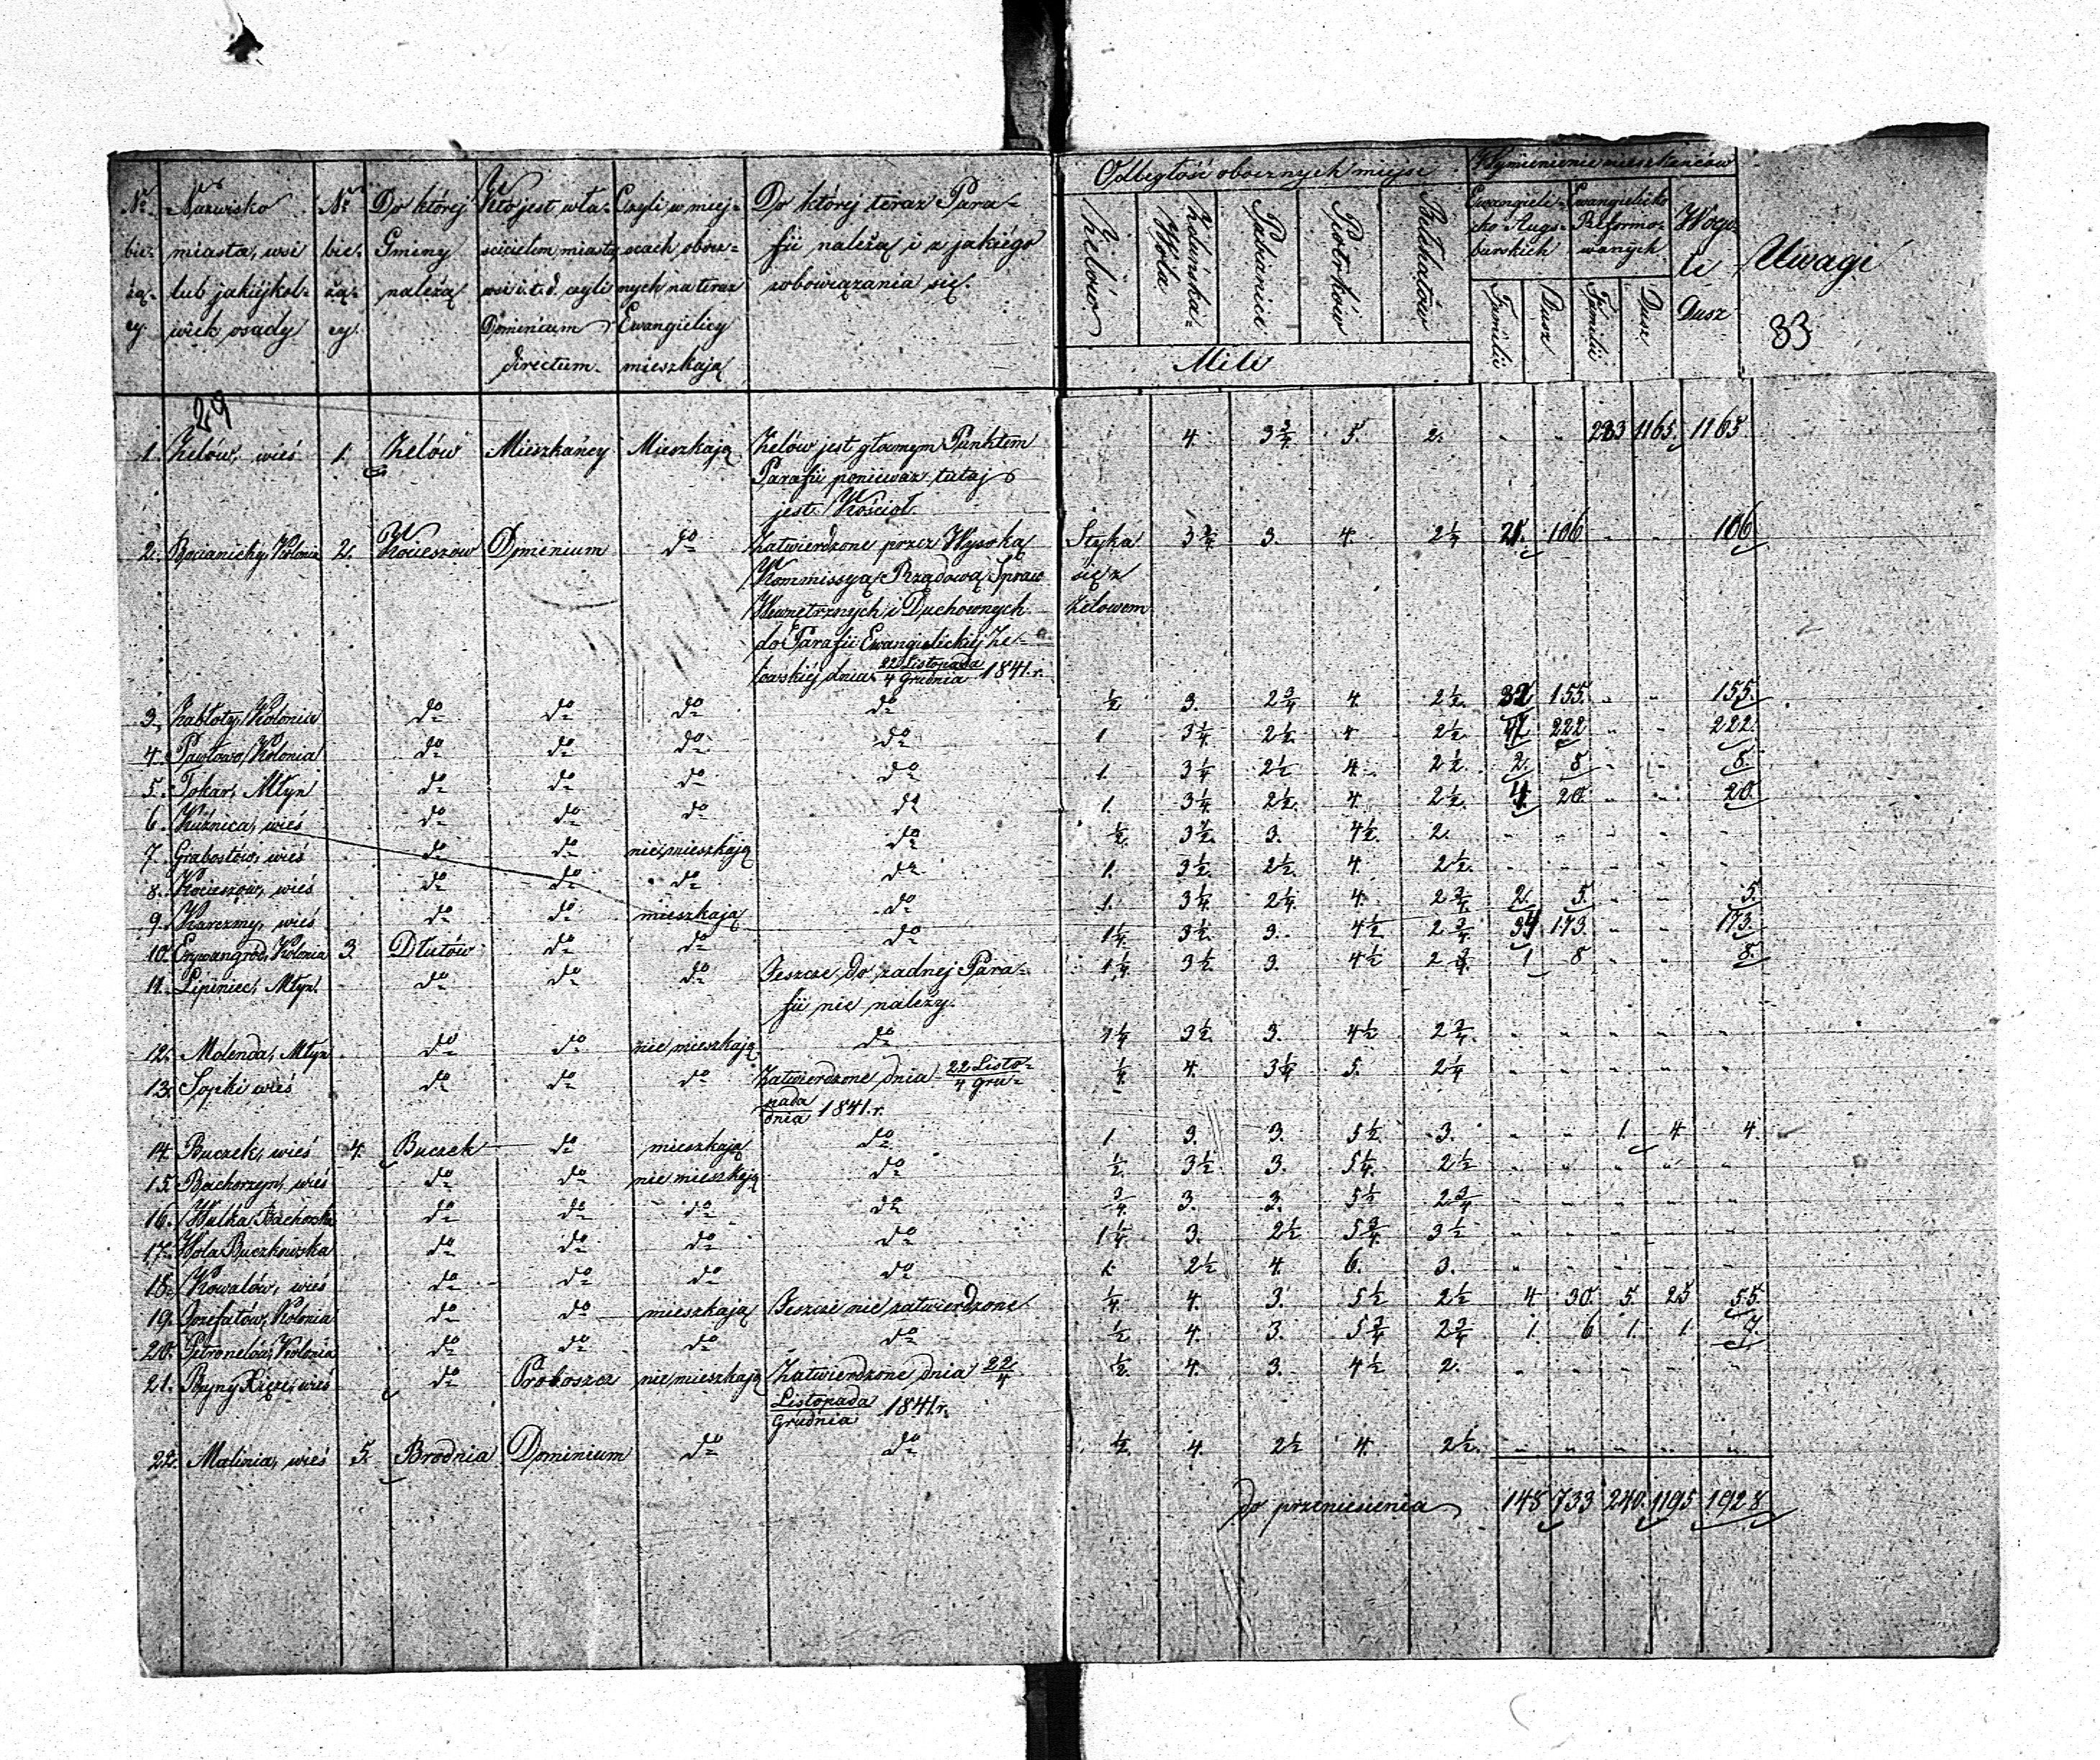 Nr bieżący. Nazwisko miasta, wsi lub jakiéjkolwiek osady Nr bieżący. Do któréj Gminy należą Kto jest właścicielem miasta, wsi i.t.d. czyli Dominium directum. Czyli w miejscach obocznych na teraz Ewangielicy mieszkają Do któréj teraz Parafii należą i z jakiégo zobowiązania się.
Odległość obocznych miejsc
Zelów Zduńska-Wola Pabianice Piotrków Bełchatów
Mile
Wymienienie mieszkańców
Ewangielicko Augsburskich Ewangielicko Reformowanych Wogóle
Familii Dusz Familii Dusz Dusz
Uwagi
33
29
1. Zelów, wieś 1. Zelów Mieszkańcy Mieszkają Zelów jest głównym Punktem 4. 3 3/4 5. 2. " " 233 1165. 1165
Parafii ponieważ tutaj
jest Kościoł.
2. Bocianichy, Kolonia 2. Kociszów Dominium do Zatwierdzone przez Wysoką Styka 3 3/4 3. 4. 2 1/4 21. 106 " " 106
Kommissyą Rządową Spraw się z
Wewnętrznych i Duchownych Zelowem
do Parafii Ewangielickiéj Ze-
lowskiéj dnia 22 Listopada/4 Grudnia 1841.r.
3. Zabłoty, Kolonia do do do do 1/2 3. 2 3/4 4. 2 1/2. 32 155. " " 155.
4. Pawłowo, Kolonia do do do do 1. 3 1/4. 2 1/2. 4 2 1/2. 222 " " 222.
5. Tokar, Młyn do do do do 1. 3 1/4 2 1/2 4. 2 1/2. 2. 8 " " 8.
6. Kuźnica, wieś do do do do 1. 3 1/4. 2 1/2. 4. 2 1/2. 4. 20. " " 20.
7. Grabostów, wieś do do nie mieszkają do 1/2. 3 1/2. 3. 4 1/2. 2. " " " " "
8. Kociszów, wieś do do do do 1. 3 1/2. 2 1/2. 4. 2 1/2. " " " " "
9. Karczmy, wieś do do mieszkają do 1. 3 1/4. 2 1/4. 4. 2 3/4. 2. 5. " " 5.
10. Kolonia 3. Dłutów do do do 1 1/4. 3 1/2. 3. 4 1/2 2 3/4. 34 173. " " 173.
11. Lipiniec, Młyn. do do do Jeszcze do żadnej Para- 1 1/4. 3 1/2. 3. 4 1/2 2 3/4. 1. 8 " " 8.
fii nie należy.
12. Molenda, Młyn do do nie mieszkają do 1 1/4 3 1/2. 3. 4 1/2 2 3/4. " " " " "
13. Sopki wieś do do do Zatwierdzone dnia 22 Listo-/4 Gru- 1/4. 4. 3 1/4 5. 2 1/4 " " " " "
pada/dnia 1841.r.
14. Buczek, wieś 4. Buczek do mieszkają do 1. 3. 3. 5 1/2. 3. " " 1. 4 4.
15. Bachorzyn, wieś do do nie mieszkają do 1/2. 3 1/2. 3. 5 1/4. 2 1/2 " " " " "
16. Wulka Bachorska do do do do 3/4. 3. 3. 5 1/2 2 3/4 " " " " "
17. Wola Buczkowska do do do do 1 1/4. 3. 2 1/2 5 3/4. 3 1/2 " " " " "
18. Kowalów, wieś do do do do 1. 2 1/2 4. 6. 3. " " " " "
19. Józefatów, Kolonia do do mieszkają Jeszcze nie zatwierdzone 1/4. 4. 3. 5 1/2 2 1/2 4. 30. 5. 25 55.
20. Petronelów, Kolonia do do do do 1/2 4. 3. 5 3/4 2 3/4. 1. 6 1. 1. 7.
21. Bujny Xięże, wieś do Proboszcz nie mieszkają Zatwierdzone dnia 22/4 1/2. 4. 3. 4 1/2 2. " " " " "
Listopada/Grudnia 1841.r.
22. Malinia, wieś 5. Brodnia Dominium do do 1/2. 4. 2 1/2 4. 2 1/2. " " " " "
do przeniesienia 148 733 240. 1195 1928